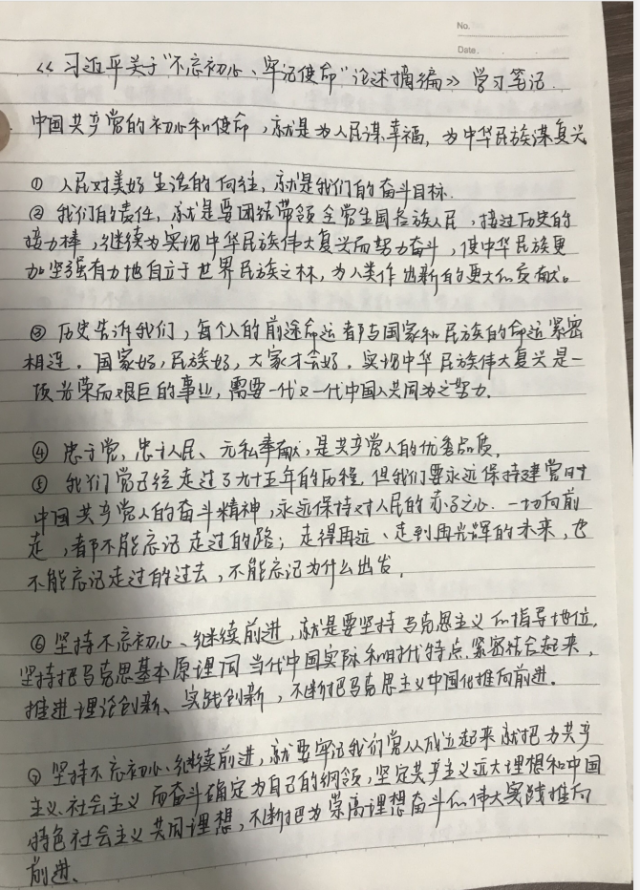 No.
Date.
《习近平关于"不忘初心、牢记使命"论述摘编》学习笔记.
中国共产党的初心和使命,就是为人民谋幸福,为中华民族谋复兴
① 人民对美好生活的向往,就是我们的奋斗目标.
② 我们的责任,就是要团结带领全党全国各族人民,接过历史的
接力棒,继续为实现中华民族伟大复兴而努力奋斗,使中华民族更
加坚强有力地自立于世界民族之林,为人类作出新的更大的贡献。
③ 历史告诉我们,每个人的前途命运都与国家和民族的命运紧密
相连.国家好,民族好,大家才会好.实现中华民族伟大复兴是一
项光荣而艰巨的事业,需要一代又一代中国人共同为之努力.
④ 忠于党,忠于人民、无私奉献,是共产党人的优秀品质.
⑤ 我们党已经走过了九十五年的历程,但我们要永远保持建党时
中国共产党人的奋斗精神,永远保持对人民的赤子之心.一切向前
走,都不能忘记走过的路;走得再远、走到再光辉的未来,也
不能忘记走过的过去,不能忘记为什么出发.
⑥ 坚持不忘初心、继续前进,就是要坚持马克思主义的指导地位,
坚持把马克思基本原理同当代中国实际和时代特点紧密结合起来,
推进理论创新、实践创新,不断把马克思主义中国化推向前进.
⑦ 坚持不忘初心、继续前进,就要牢记我们党从成立起来就把为共产
主义、社会主义而奋斗确定为自己的纲领,坚定共产主义远大理想和中国
特色社会主义共同理想,不断把为崇高理想奋斗的伟大实践推向
前进、